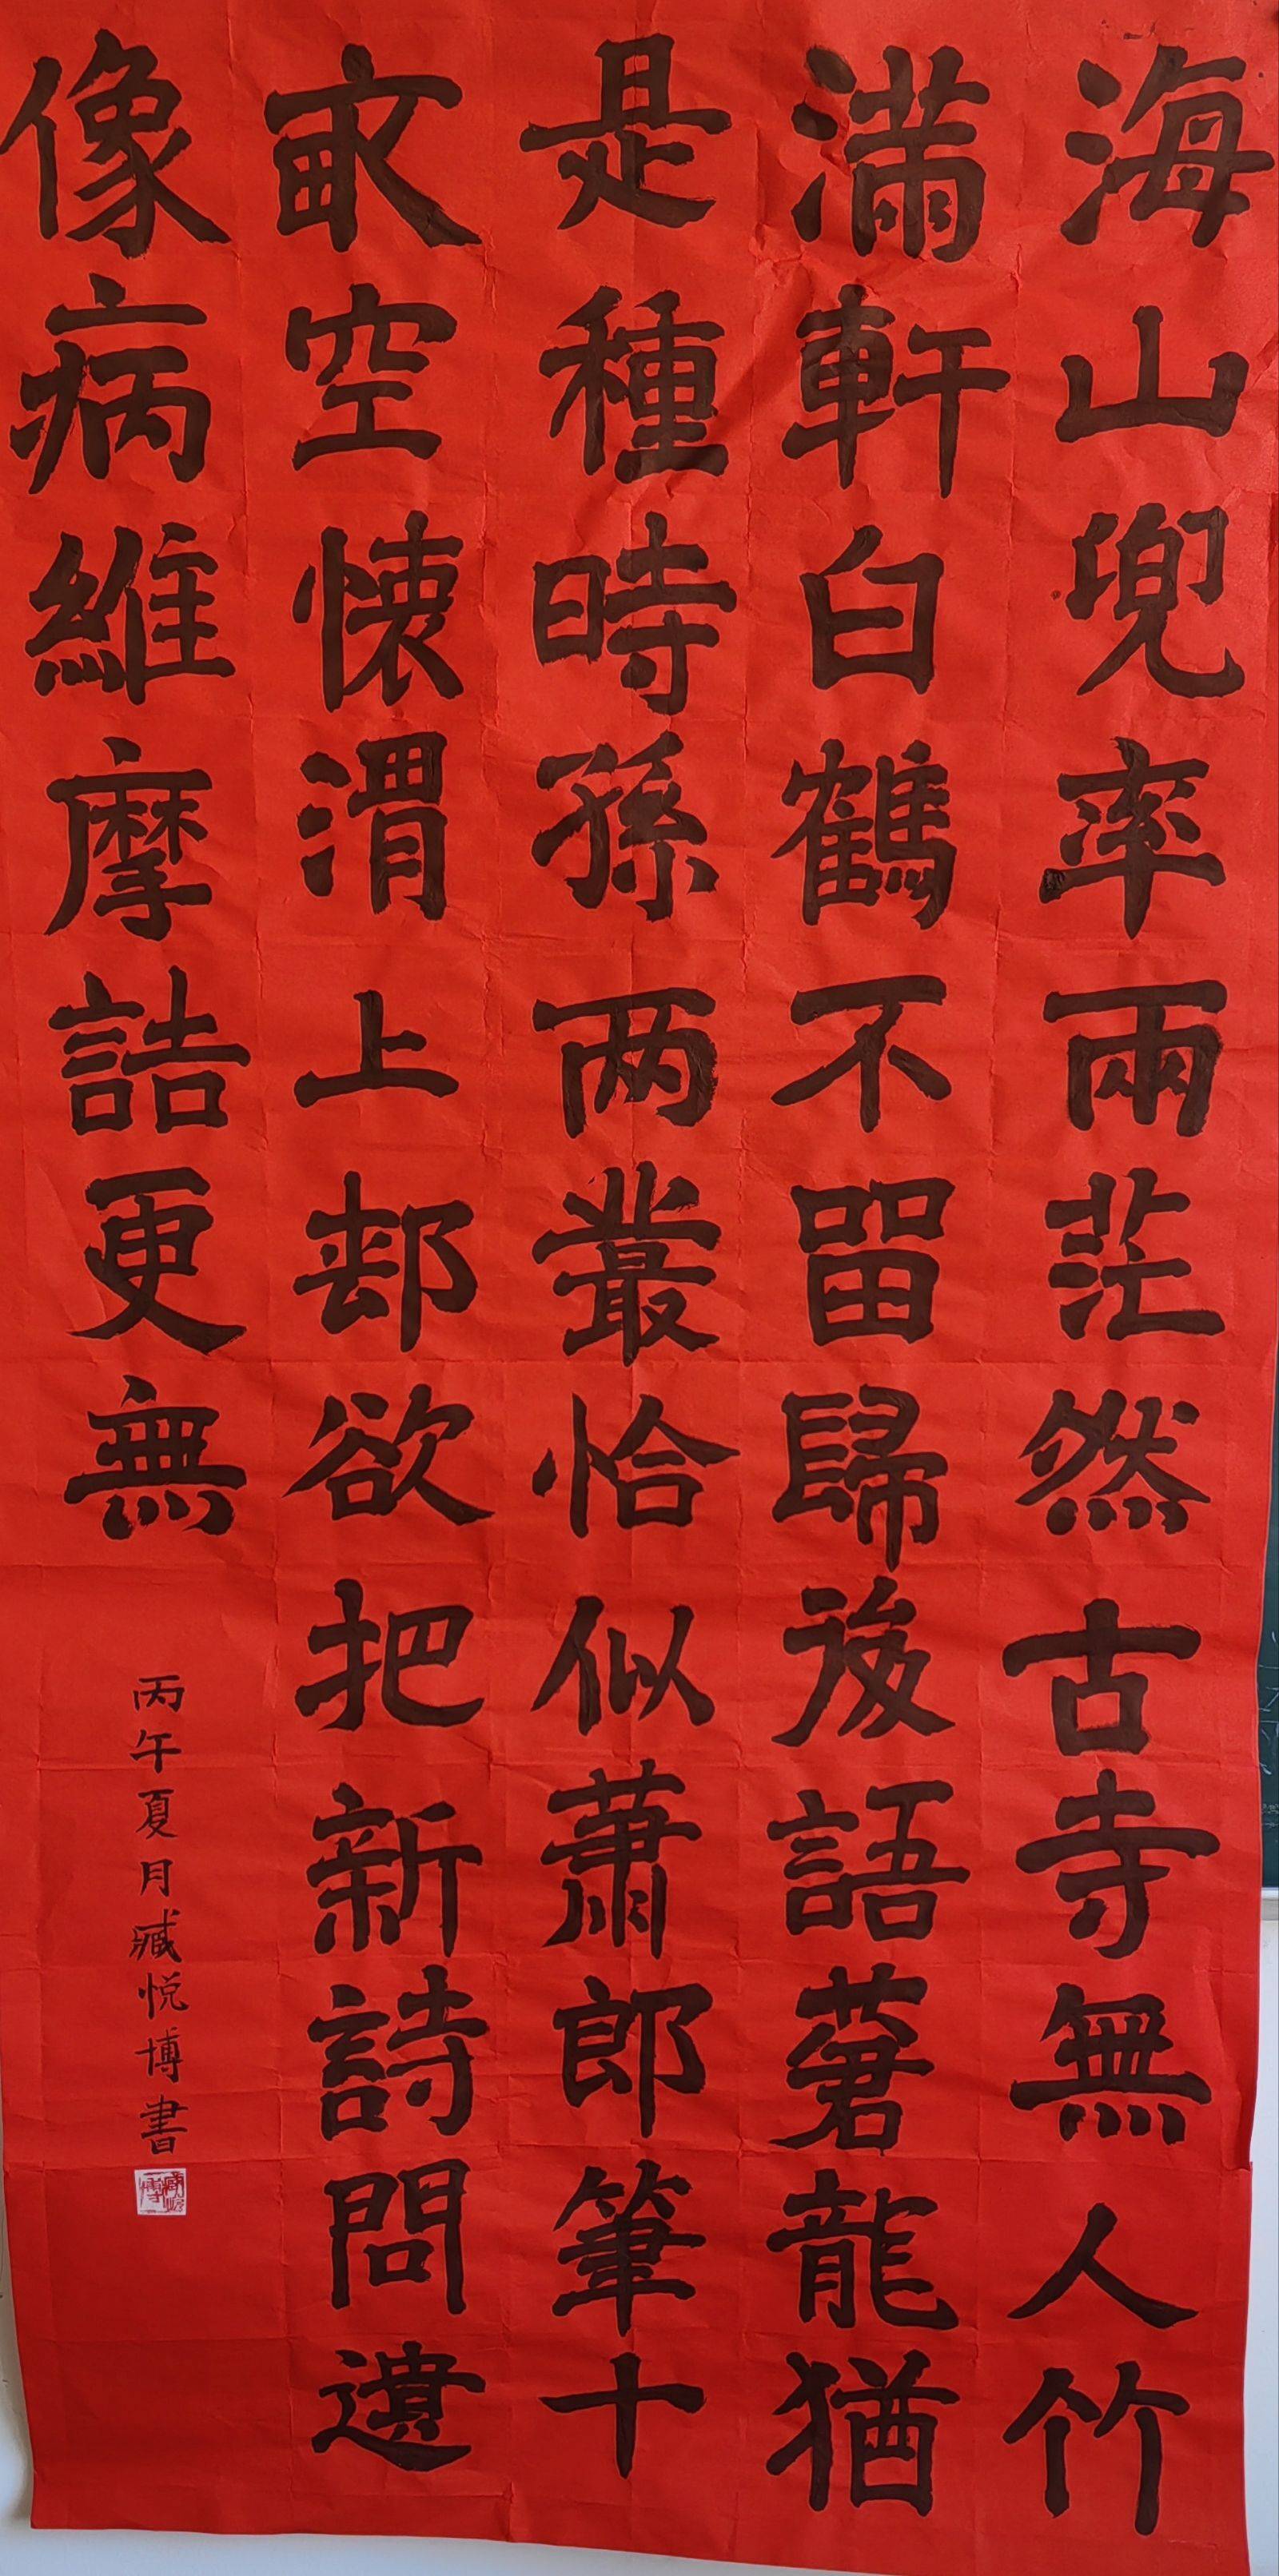 海山兜率兩茫然古寺無人竹
滿軒白鶴不留歸後語蒼龍猶
是種時孫两叢恰似蕭郎筆十
畝空懷渭上邨欲把新詩問遺
像病維摩詰更無
丙午夏月臧悦博書